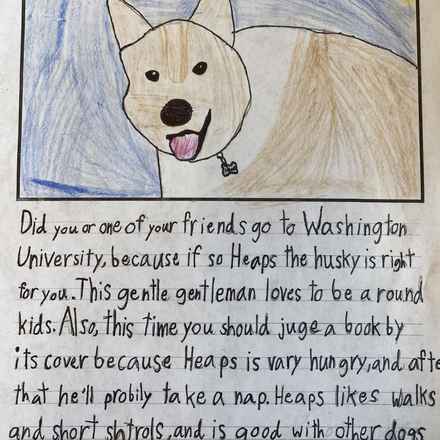 Did you or one of your friends go to Washington
University, because if so Heaps the husky is right
for you. This gentle gentleman loves to be a round
kids. Also, this time you should juge a book by
its cover because Heaps is vary hungry, and afte
that he'll probily take a nap. Heaps likes walks
and short shtrols, and is good with other dogs